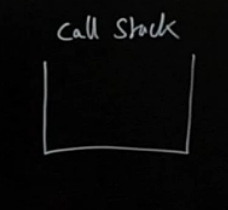 Call Stack